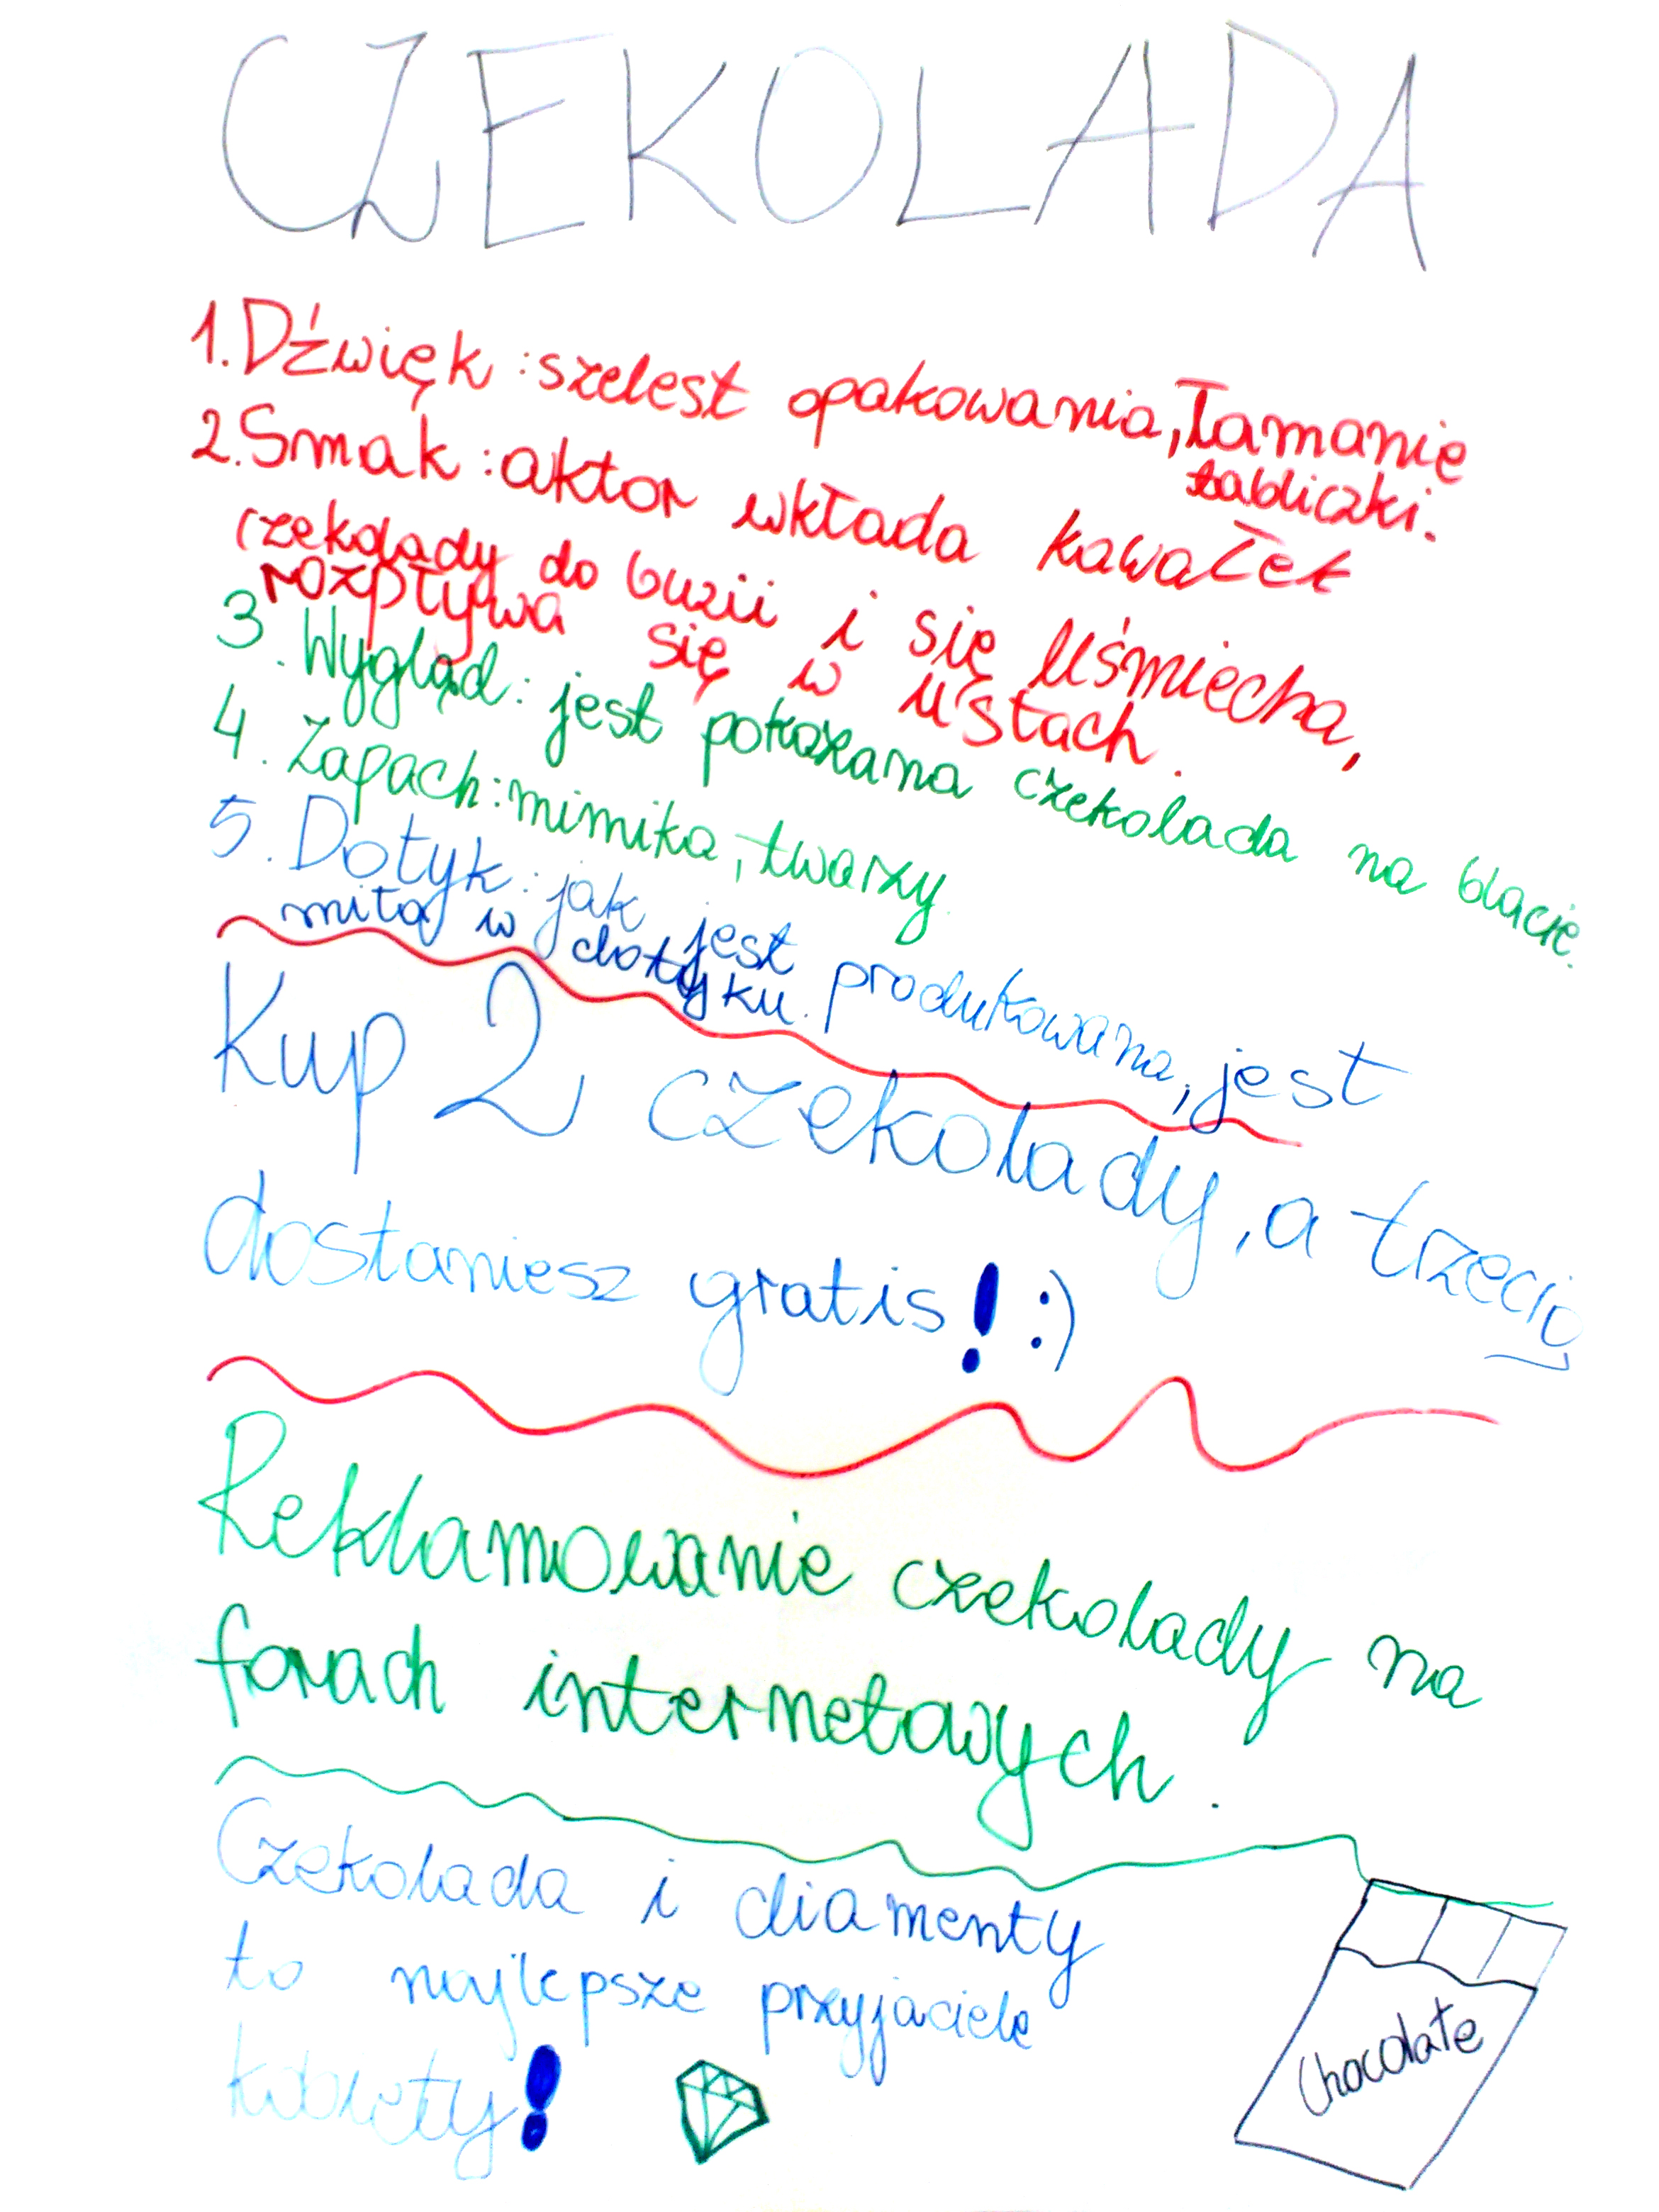 CZEKOLADA
1. Dźwięk: szelest opakowania, łamanie
tabliczki.
2. Smak: aktor wkłada kawałek
czekolady do buzii i się uśmiecha,
rozpływa się w ustach.
3. Wygląd: jest pokazana czekolada na blacie.
4. Zapach: mimika, twarzy
5. Dotyk: jak jest produkowana, jest
miła w dotyku.
Kup 2 czekolady, a trzecią
dostaniesz gratis! :)
Reklamowanie czekolady na
forach internetowych.
Czekolada i diamenty
to najlepsze przyjaciele
kobiety!
Chocolate